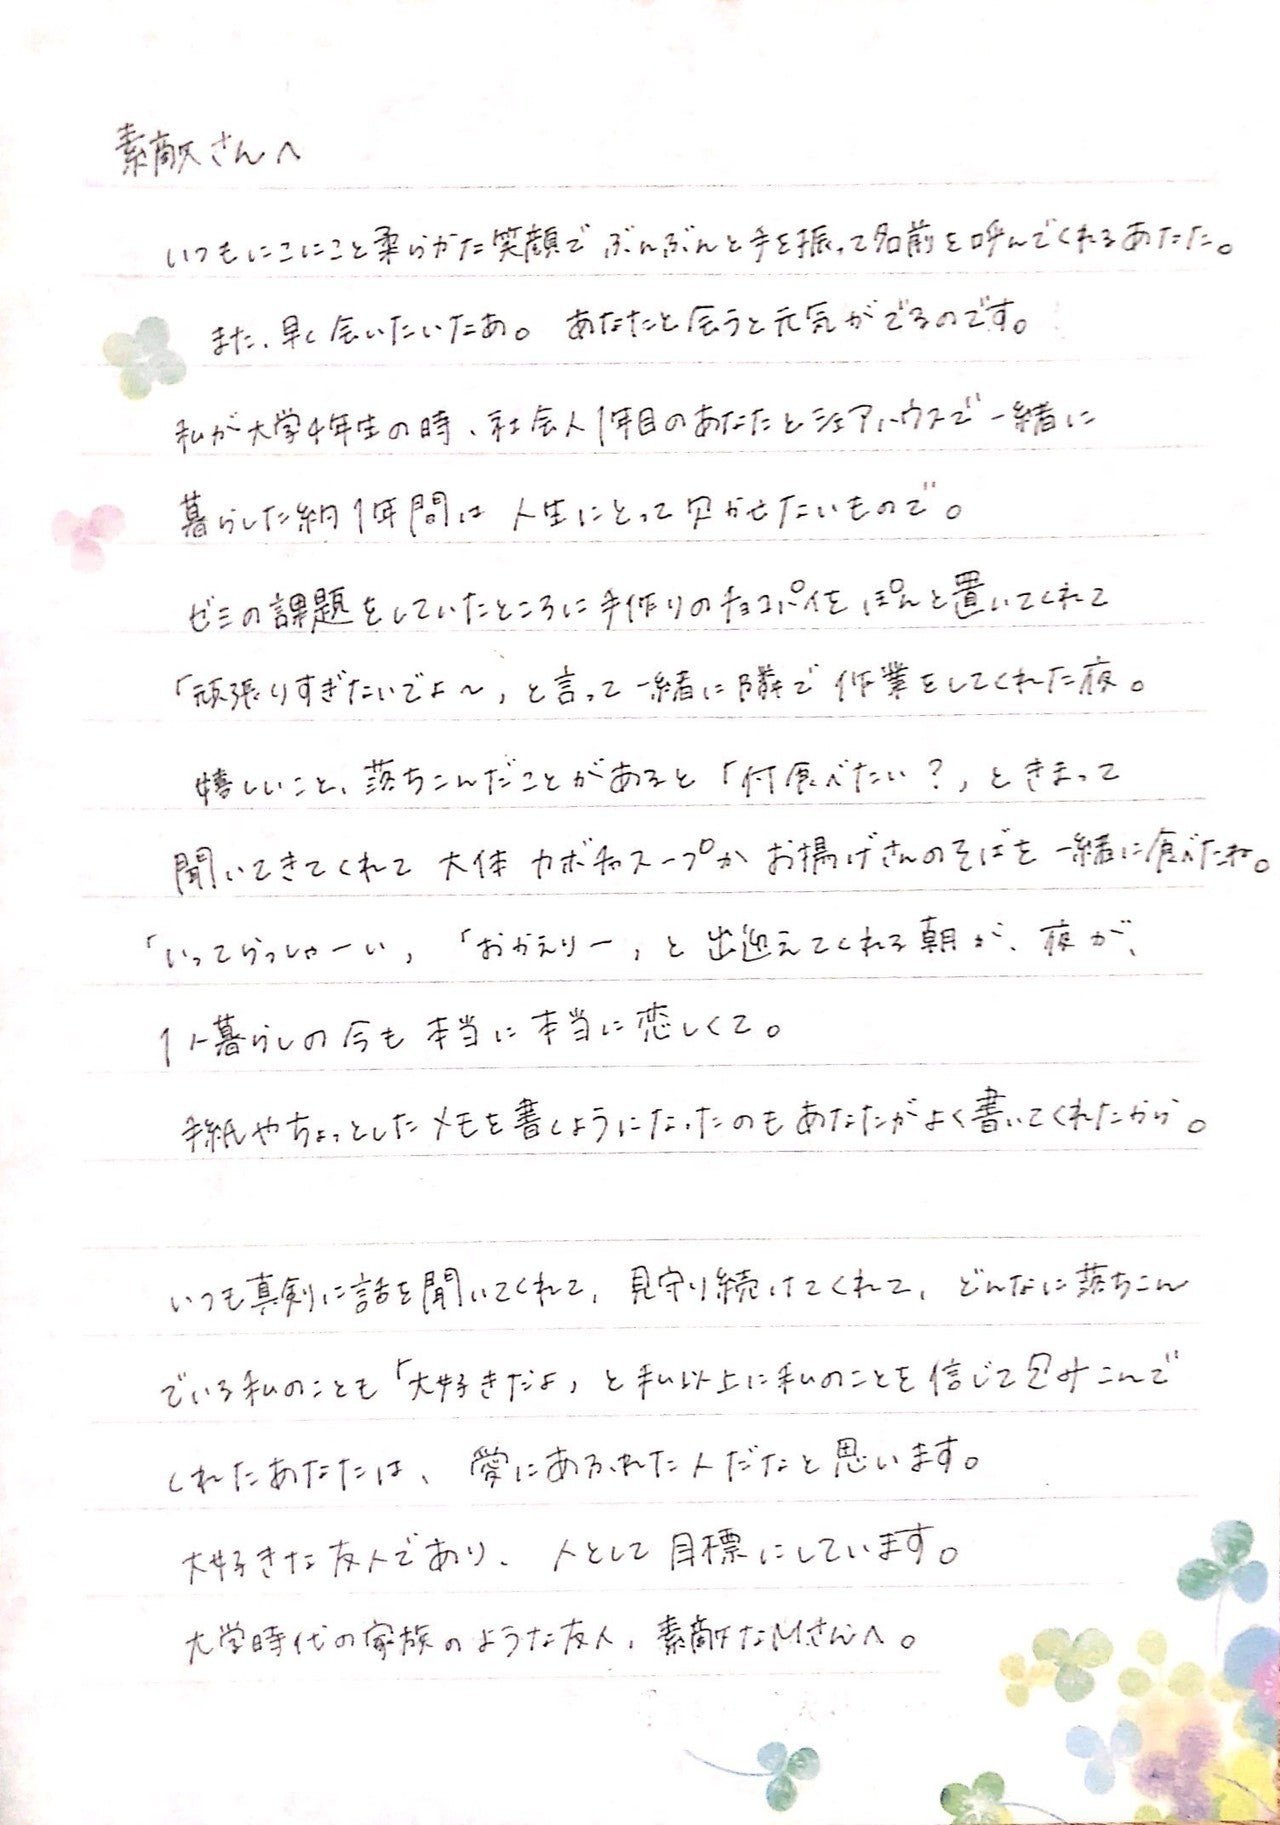 素敵さんへ
いつもにこにこと柔らかな笑顔でぶんぶんと手を振って名前を呼んでくれるあなた。
また、早く会いたいなあ。 あなたと会うと元気がでるのです。
私が大学4年生の時、社会人1年目のあなたとシェアハウスで一緒に
暮らした約1年間は 人生にとって欠かせないもので。
ゼミの課題をしていたところに手作りのチョコパイをぽんと置いてくれて
「頑張りすぎないでよ～」と言って一緒に隣で作業をしてくれた夜。
嬉しいこと、落ちこんだことがあると「何食べたい？」ときまって
聞いてきてくれて 大体 カボチャスープか お揚げさんのそばを一緒に食べたね。
「いってらっしゃーい」「おかえりー」と出迎えてくれる朝が、夜が、
1人暮らしの今も本当に本当に恋しくて。
手紙やちょっとしたメモを書くようになったのもあなたがよく書いてくれたから。
いつも真剣に話を聞いてくれて、見守り続けてくれて、どんなに落ちこん
でいる私のことも「大好きだよ」と私以上に私のことを信じて包みこんで
くれたあなたは、愛にあふれた人だなと思います。
大好きな友人であり、人として目標にしています。
大学時代の家族のような友人、素敵なMさんへ。